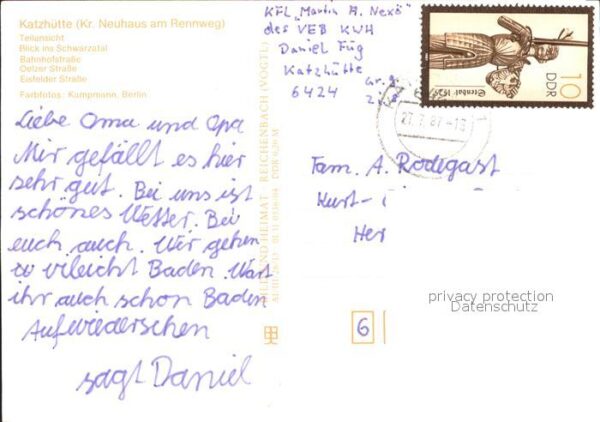 Katzhütte (Kr. Neuhaus am Rennweg)
Teilansicht
Blick ins Schwarzatal
Bahnhofstraße
Oelzer Straße
Eisfelder Straße
Farbfotos: Kampmann, Berlin
Liebe Oma und Opa
Mir gefällt es hier
sehr gut. Bei uns ist
schönes Wetter. Bei
euch auch. Wir gehen
vileicht Baden. Wart
ihr auch schon Baden
Aufwiedersehen
sagt Daniel
BILD UND HEIMAT REICHENBACH (VOGTL)
KFL „Martin A. Nexö"
des VEB KWH
Daniel Füg
Katzhütte
6424
Gr.
10
DDR
27.7.87-13
Fam. A. Rodegast
Kurt-
Her
6
privacy protection
Datenschutz